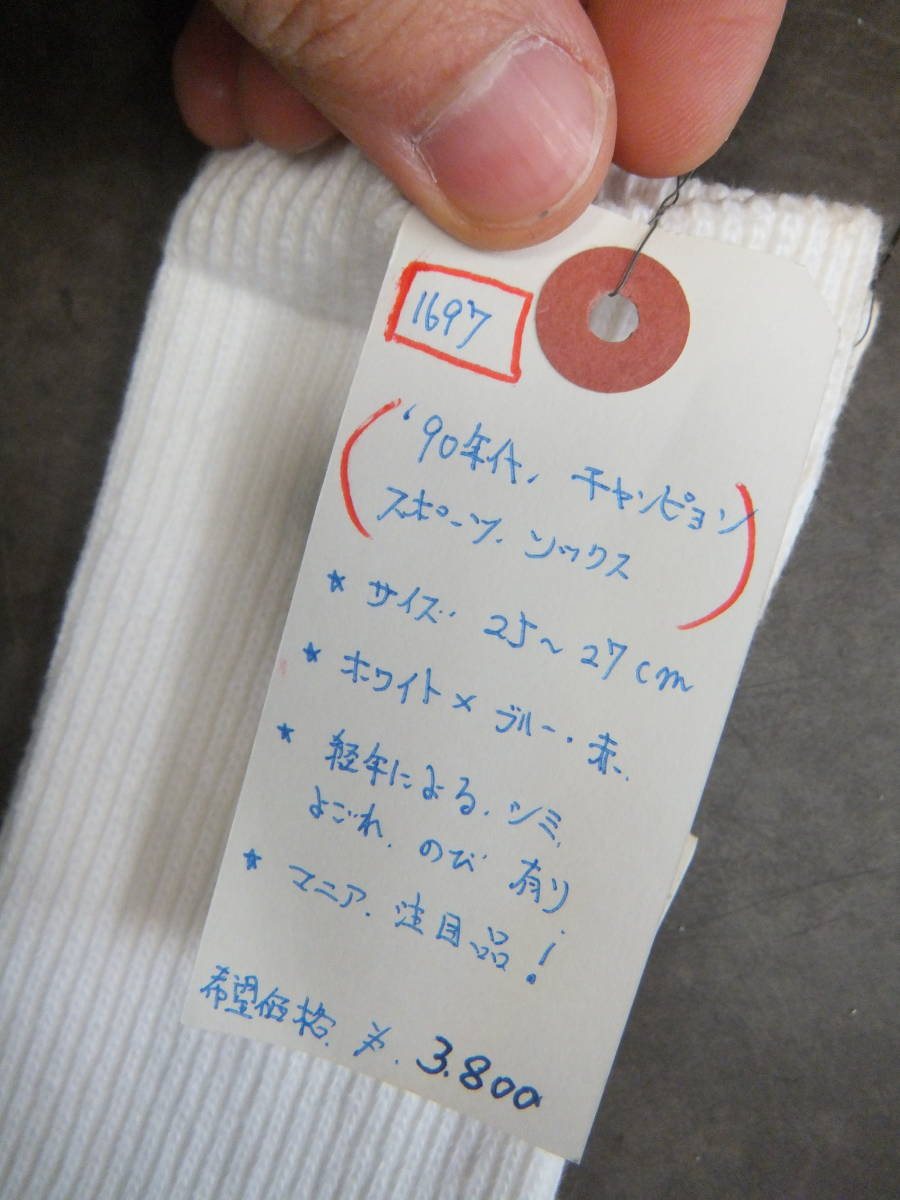 1697
'90年代、チャンピョン
スポーツ、ソックス
★ サイズ 25~27cm
★ ホワイト×ブルー・赤、
★ 軽年による、シミ、
よごれ、のび 有り
★ マニア、注目品!
希望価格、¥.3.800